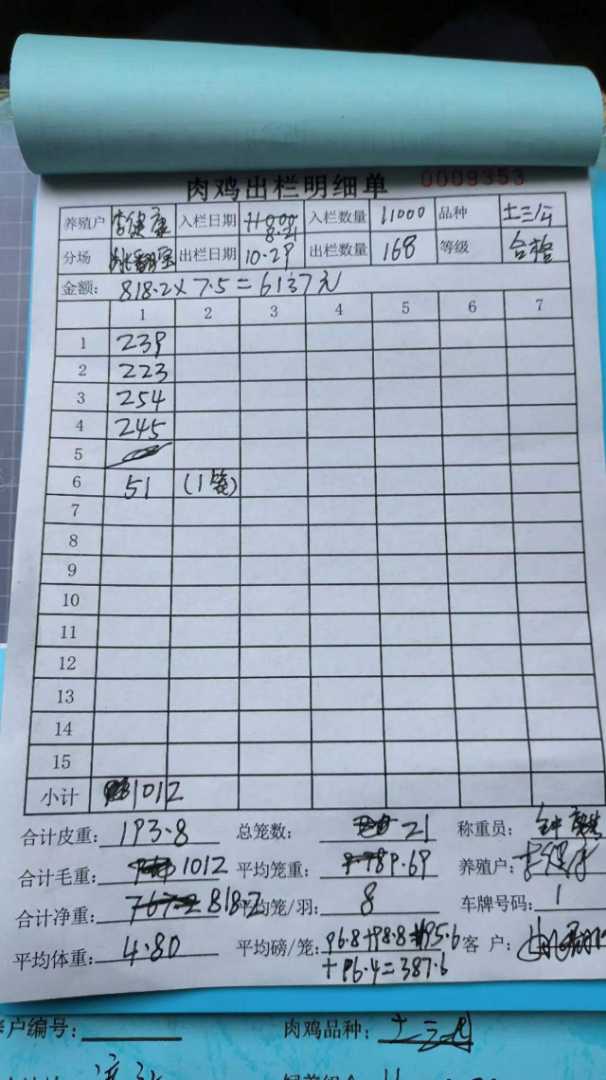 肉鸡出栏明细单 0009353
养殖户 李健康 入栏日期 8-21 入栏数量 11000 品种 土三
分场 出栏日期 10-29 出栏数量 168 等级 合格
金额: 818.2×7.5=6137元
1 2 3 4 5 6 7
1 239
2 223
3 254
4 245
5
6 51 (1笼)
7
8
9
10
11
12
13
14
15
小计 1012
合计皮重: 193.8 总笼数: 21 称重员:
合计毛重: 1012 平均笼重: 89.69 养殖户: 李健康
合计净重: 818.2 平均笼/羽: 8 车牌号码: 1
平均体重: 4.80 平均磅/笼: 96.8+98.8+95.6 客 户:
+96.4=387.6
户编号: 肉鸡品种: 土三